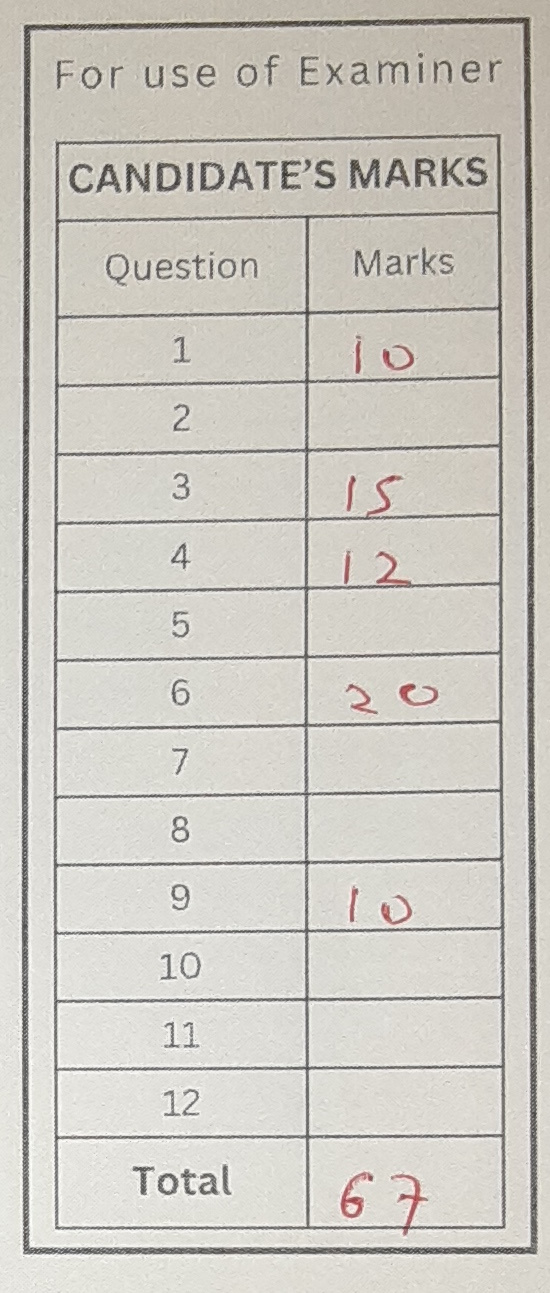 For use of Examiner
CANDIDATE'S MARKS
Question Marks
1 10
2
3 15
4 12
5
6 20
7
8
9 10
10
11
12
Total 67